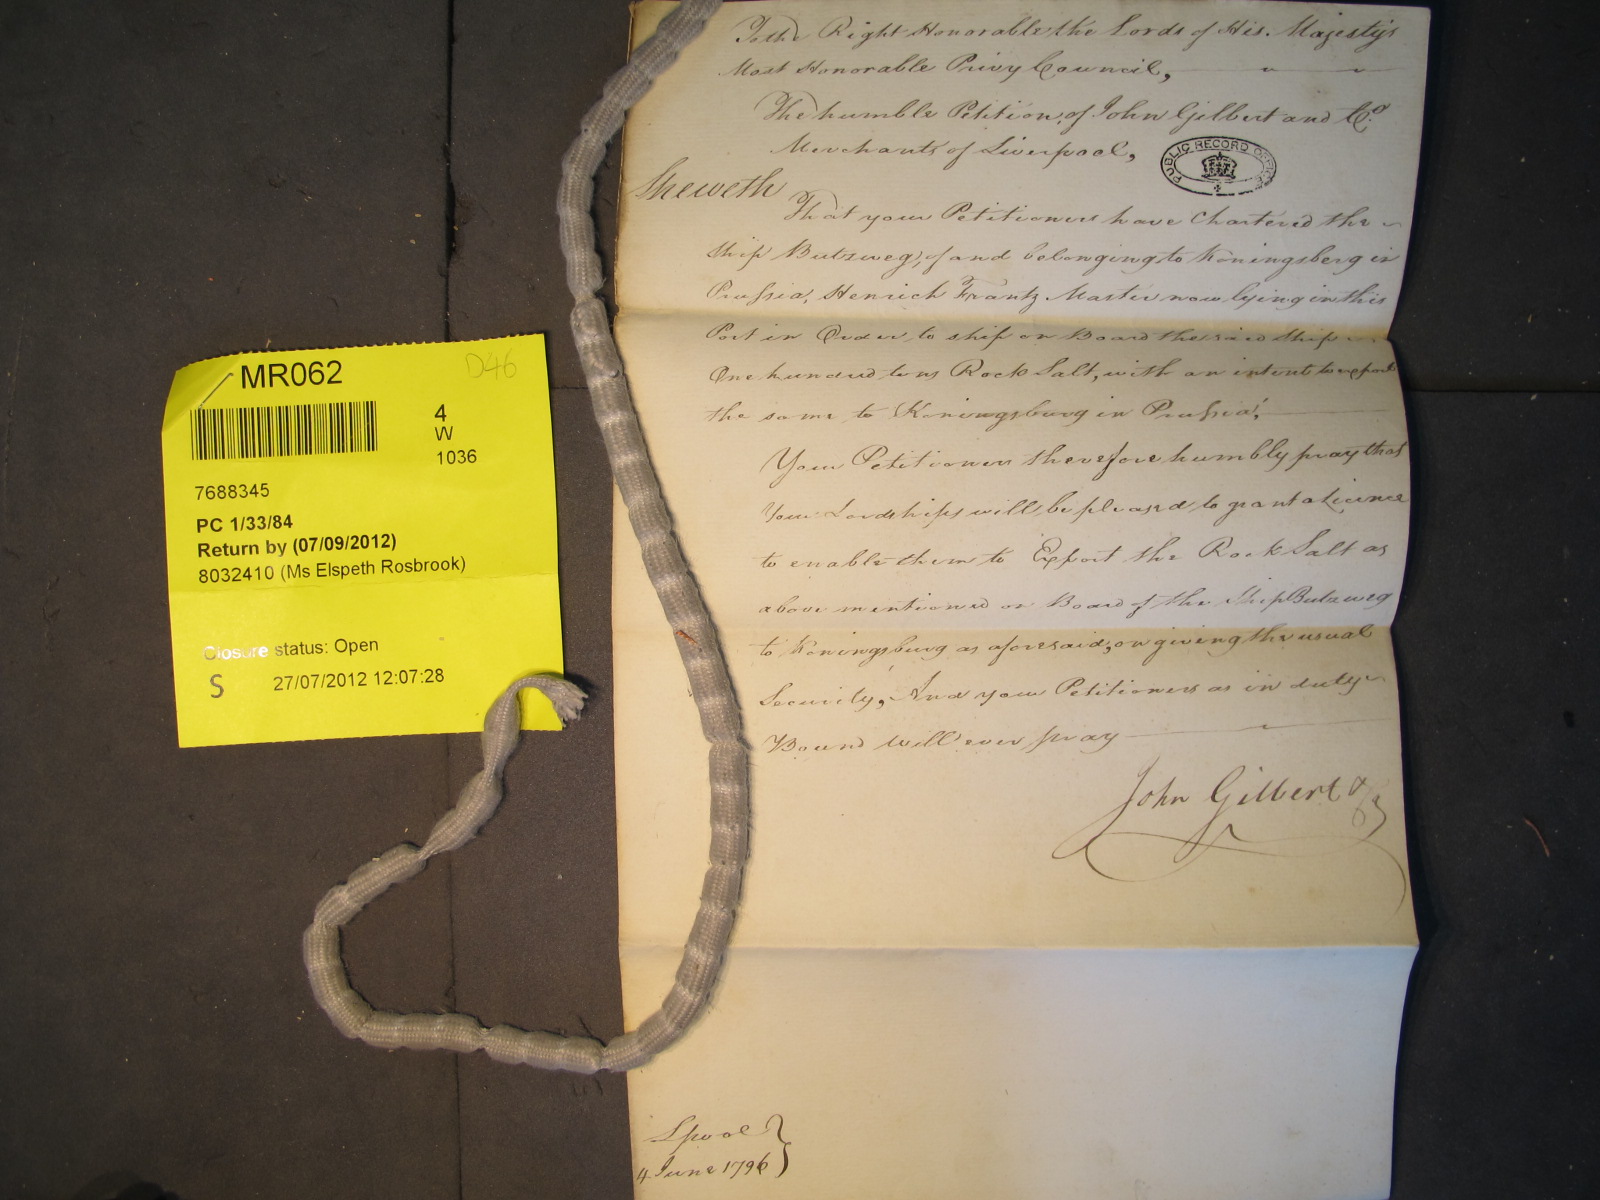 To the Right Honorable the Lords of His Majesty's
Most Honorable Privy Council,
The humble Petition of John Gilbert and Co.
Merchants of Liverpool,
PUBLIC RECORD OFFICE
Sheweth
That your Petitioners have Chartered the
Ship Butzweg, of and belonging to Koningsberg in
Prussia, Henrich Frantz Master now lying in this
Port in Order to ship on Board the said Ship
One hundred tons Rock Salt, with an intent to export
the same to Koningsburg in Prussia,
Your Petitioners therefore humbly pray that
Your Lordships will be pleased to grant a Licence
to enable them to Export the Rock Salt as
above mentioned on Board of the Ship Butzweg
to Koningsburg as aforesaid, on giving the usual
Security, And your Petitioners as in duty
Bound will ever pray
John Gilbert & Co
Lpool
4 June 1796
MR062
D46
4
W
1036
7688345
PC 1/33/84
Return by (07/09/2012)
8032410 (Ms Elspeth Rosbrook)
Closure status: Open
S
27/07/2012 12:07:28